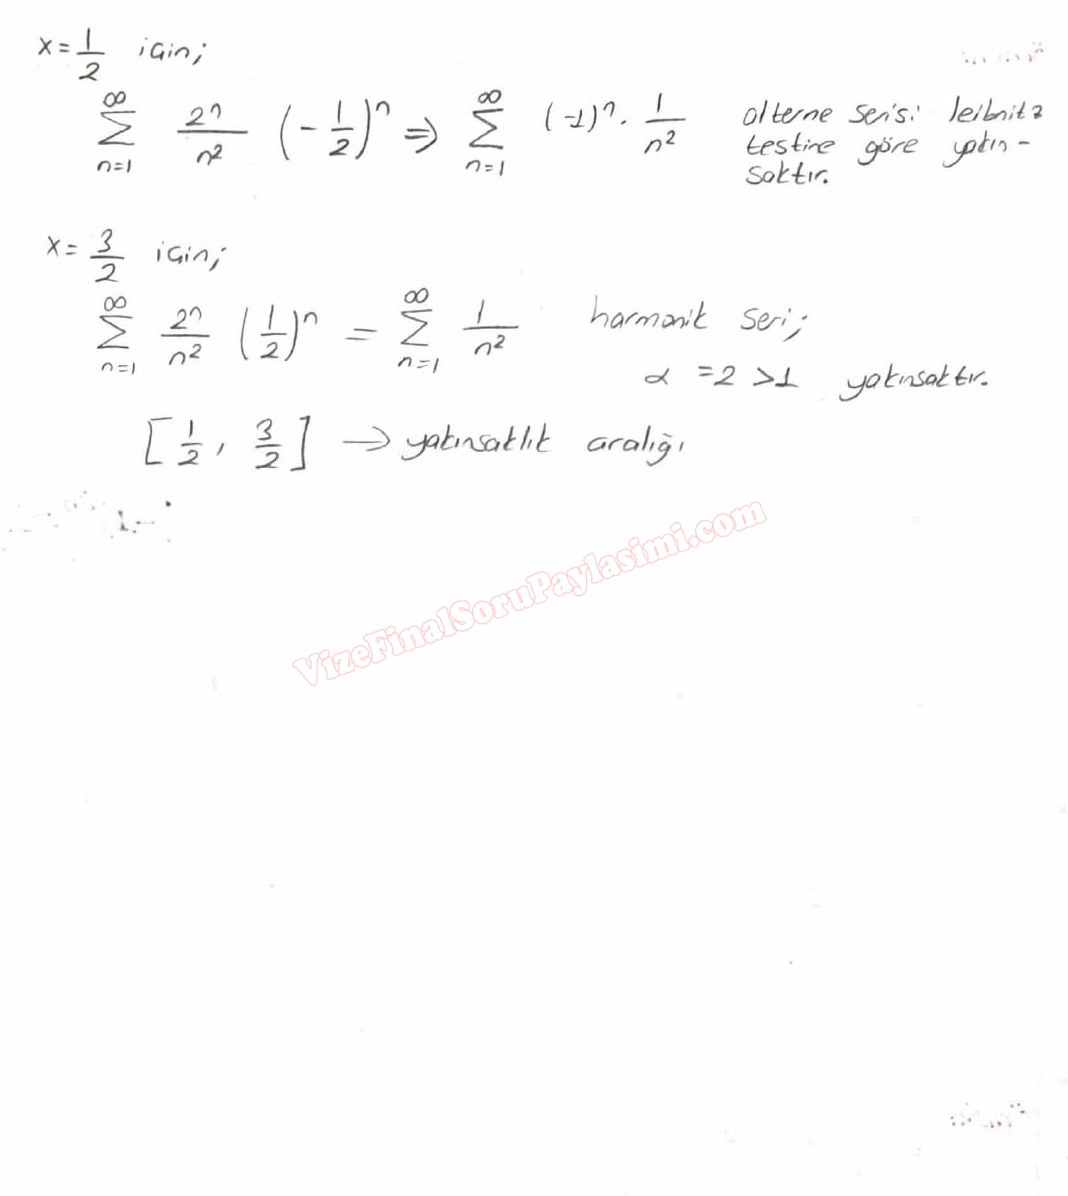 x = 1/2 için;
∞∑n=1 2ⁿ/n² (-1/2)ⁿ ⇒ ∞∑n=1 (-1)ⁿ. 1/n² alterne serisi leibnitz
testine göre yakın-
saktır.
x = 3/2 için;
∞∑n=1 2ⁿ/n² (1/2)ⁿ = ∞∑n=1 1/n² harmonik seri;
α = 2 > 1 yakınsaktır.
[1/2, 3/2] → yakınsaklık aralığı
VizeFinalSoruPaylasimi.com